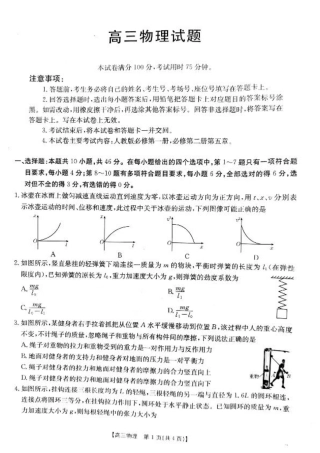 高三物理试题
本试卷满分100分,考试用时75分钟。
注意事项:
1.答题前,考生务必将自己的姓名、考生号、考场号、座位号填写在答题卡上。
2.回答选择题时,选出每小题答案后,用铅笔把答题卡上对应题目的答案标号涂
黑。如需改动,用橡皮擦干净后,再选涂其他答案标号。回答非选择题时,将答案写在
答题卡上。写在本试卷上无效。
3.考试结束后,将本试卷和答题卡一并交回。
4.本试卷主要考试内容:人教版必修第一册,必修第二册第五章。
一、选择题:本题共10小题,共46分。在每小题给出的四个选项中,第1~7题只有一项符合题
目要求,每小题4分;第8~10题有多项符合题目要求,每小题6分,全部选对的得6分,选
对但不全的得3分,有选错的得0分。
1.冰壶在冰面上做匀减速直线运动直到速度为零,以冰壶运动方向为正方向,用t、x、v、a分别表
示冰壶运动的时间、位移和速度,此过程中关于冰壶的运动,下列图像可能正确的是
A B C D
2.如图所示,竖直悬挂的轻弹簧下端连接一质量为m的物块,平衡时弹簧的长度为L₁(在弹性
限度内),已知弹簧的原长为L₀,重力加速度大小为g,则弹簧的劲度系数为
A. mg/L₁
B. mg/L₀
C. mg/(L₁-L₀)
3.如图所示,某健身者右手拉着抓把从位置A水平缓慢移动到位置B,该过程中人的重心高度
不变,不计绳子的质量,忽略绳子和重物与所有构件间的摩擦,下列说法正确的是
A.绳子对重物的拉力和重物受到的重力是一对作用力与反作用力
B.地面对健身者的支持力和健身者对地面的压力是一对平衡力
C.地面对健身者的支持力和摩擦力的合力竖直向上
D.绳子对健身者的拉力和地面对健身者的摩擦力的合力竖直向下
4.如图所示,
大小为g,
【高三物理 第1页(共4页)】